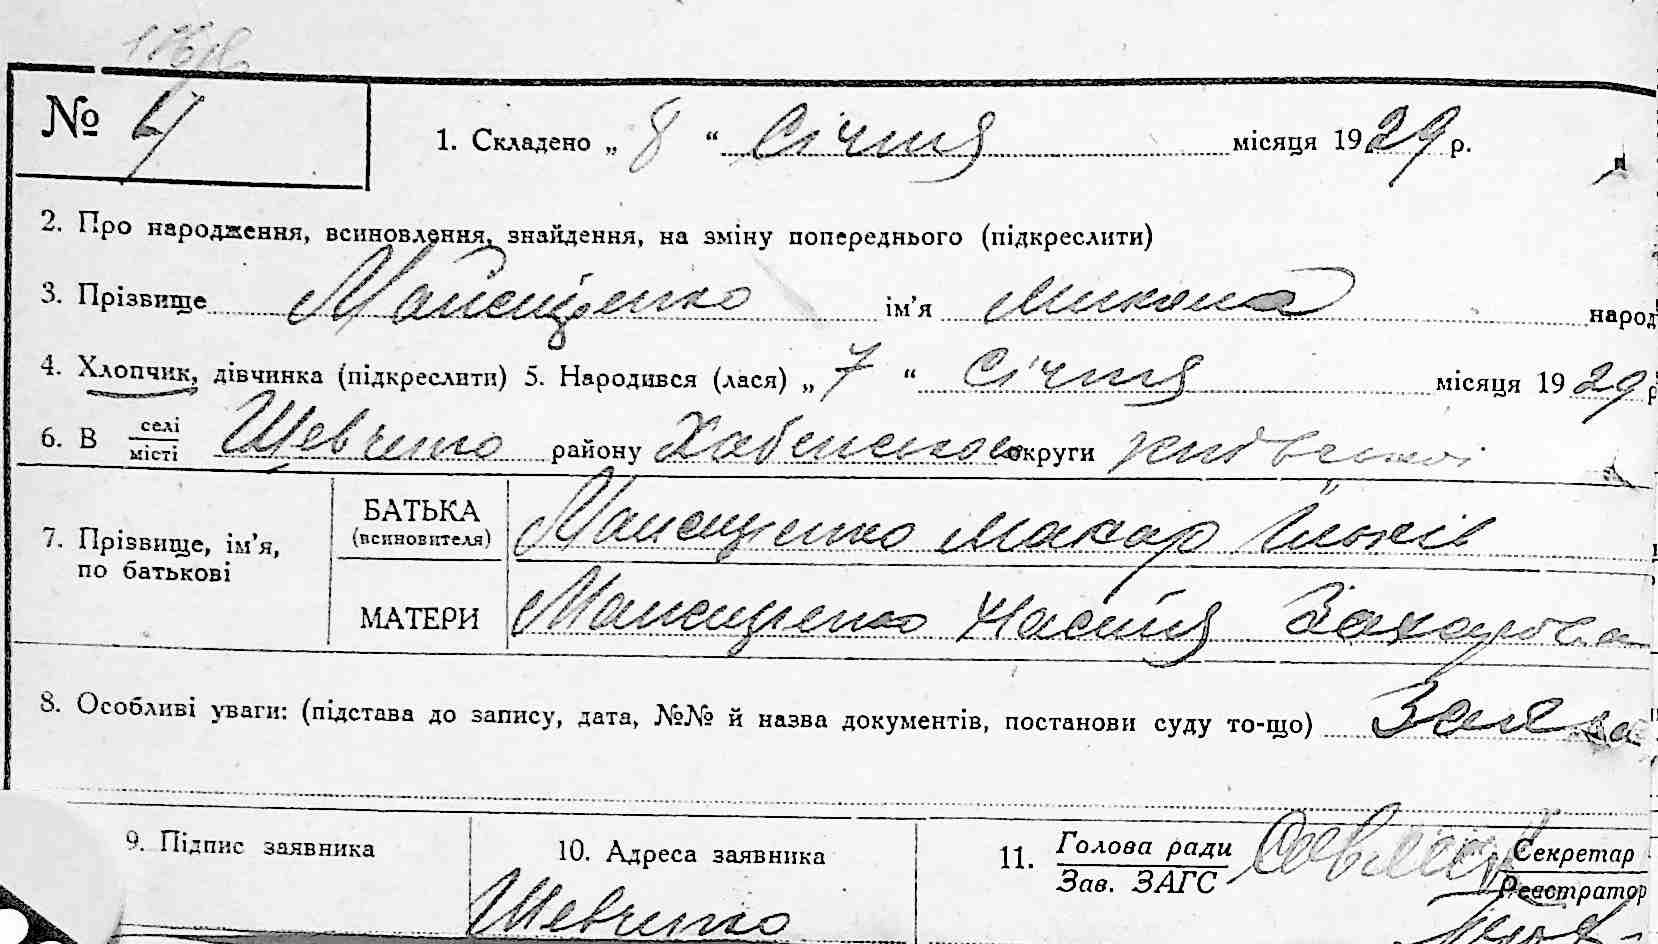 № 4
1. Складено „ 8 “ Січня місяця 1929 р.
2. Про народження, всиновлення, знайдення, на зміну попереднього (підкреслити)
3. Прізвище ім'я Микола народ
4. Хлопчик, дівчинка (підкреслити) 5. Народився (лася) „ 7 “ Січня місяця 1929 р
6. В селі/місті Шевченко району Хабенського округи Київської
7. Прізвище, ім'я, по батькові
БАТЬКА (всиновителя) Макар
МАТЕРИ Настя Захарова
8. Особливі уваги: (підстава до запису, дата, №№ й назва документів, постанови суду то-що) Заява
9. Підпис заявника
10. Адреса заявника
Шевченко
11. Голова ради / Зав. ЗАГС
Секретар / Реєстратор